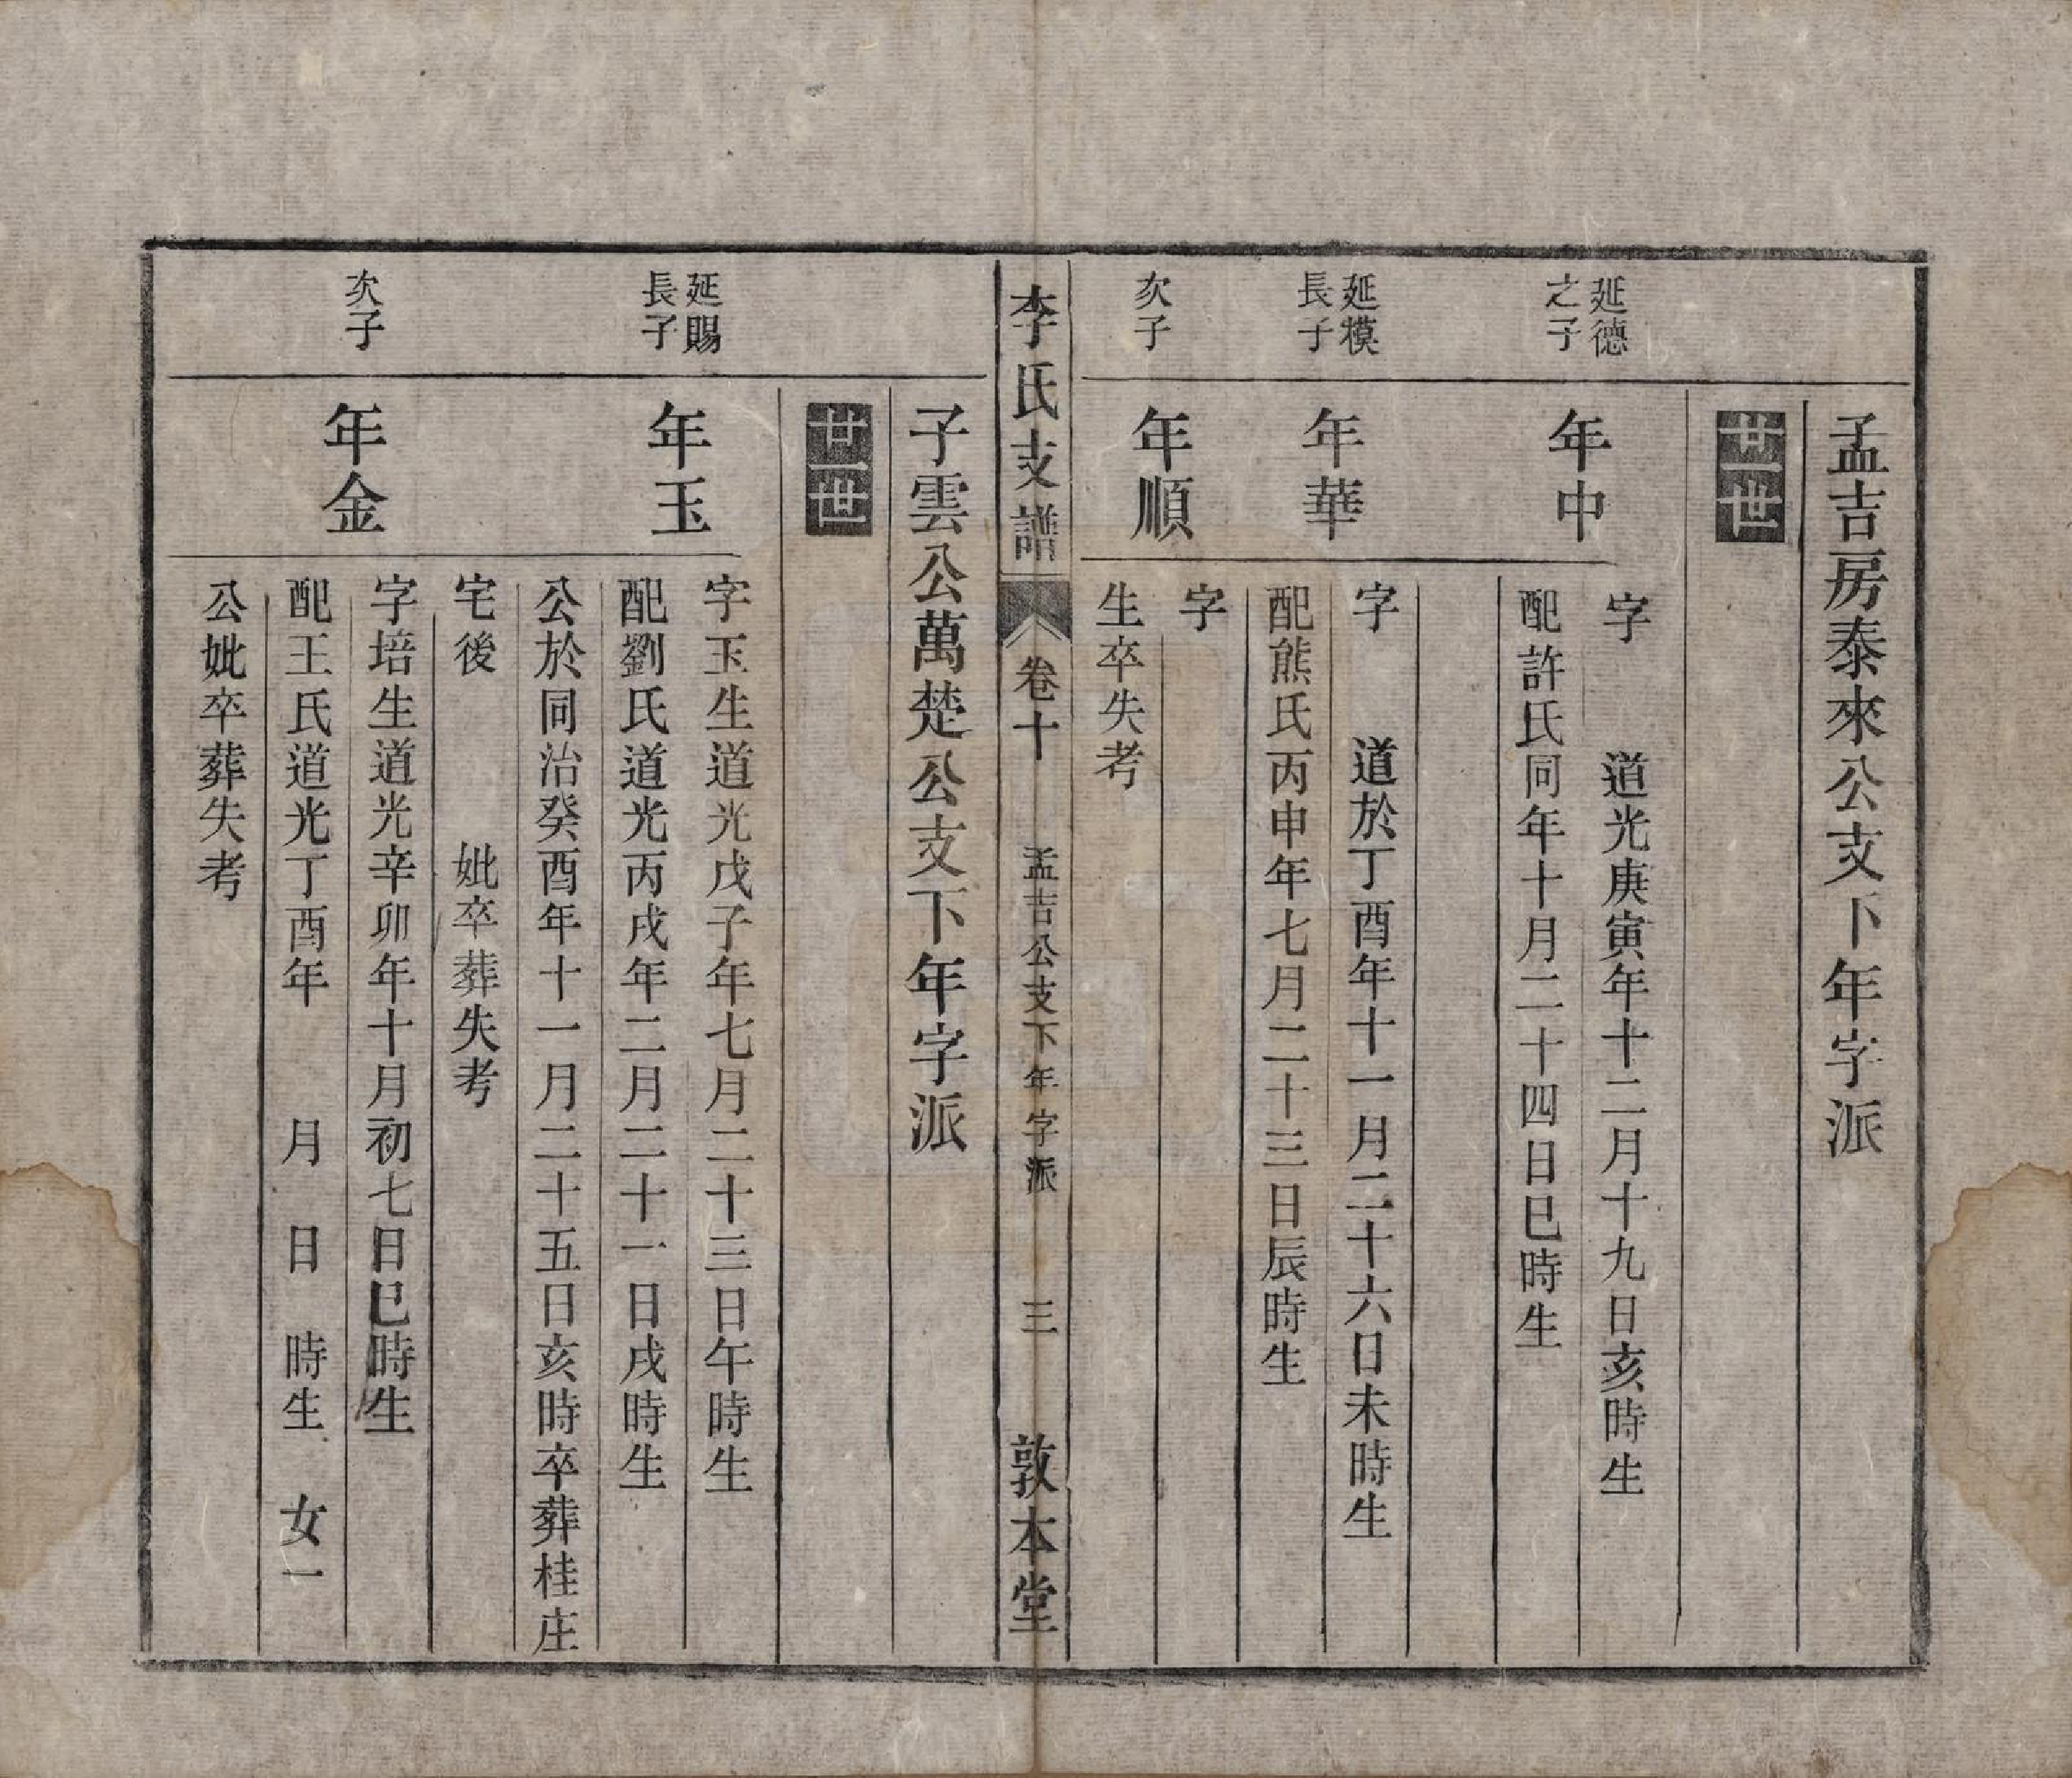 孟吉房泰來公支下年字派
廿一世
延德
之子
年中
字　道光庚寅年十二月十九日亥時生
配許氏同年十月二十四日巳時生
延模
長子
年華
字　道於丁酉年十一月二十六日未時生
配熊氏丙申年七月二十三日辰時生
次子
年順
字
生卒失考
李氏支譜
卷十
孟吉公支下年字派
三
敦本堂
子雲公萬楚公支下年字派
廿一世
延賜
長子
年玉
字玉生道光戊子年七月二十三日午時生
配劉氏道光丙戌年二月二十一日戌時生
公於同治癸酉年十一月二十五日亥時卒葬桂庄
宅後　妣卒葬失考
次子
年金
字培生道光辛卯年十月初七日巳時生
配王氏道光丁酉年　月　日　時生　女一
公妣卒葬失考